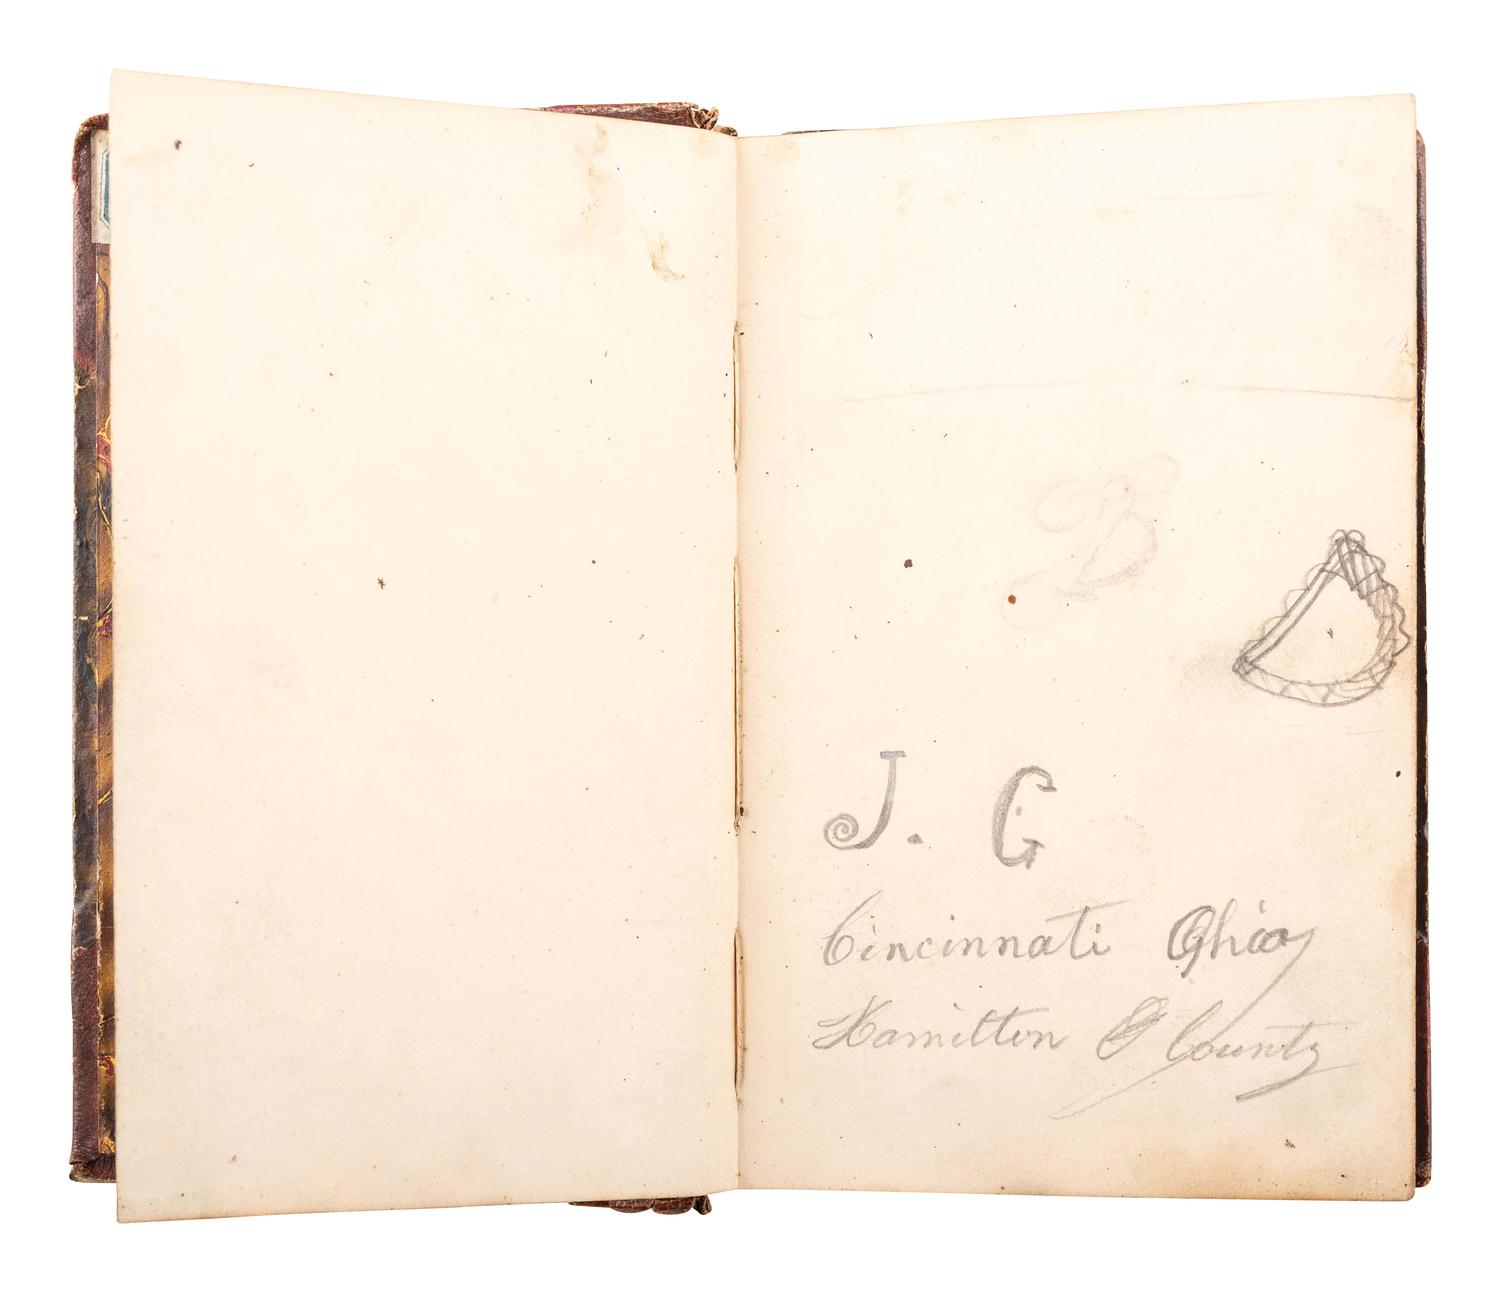 J. G
Cincinnati Ohio
Hamilton County